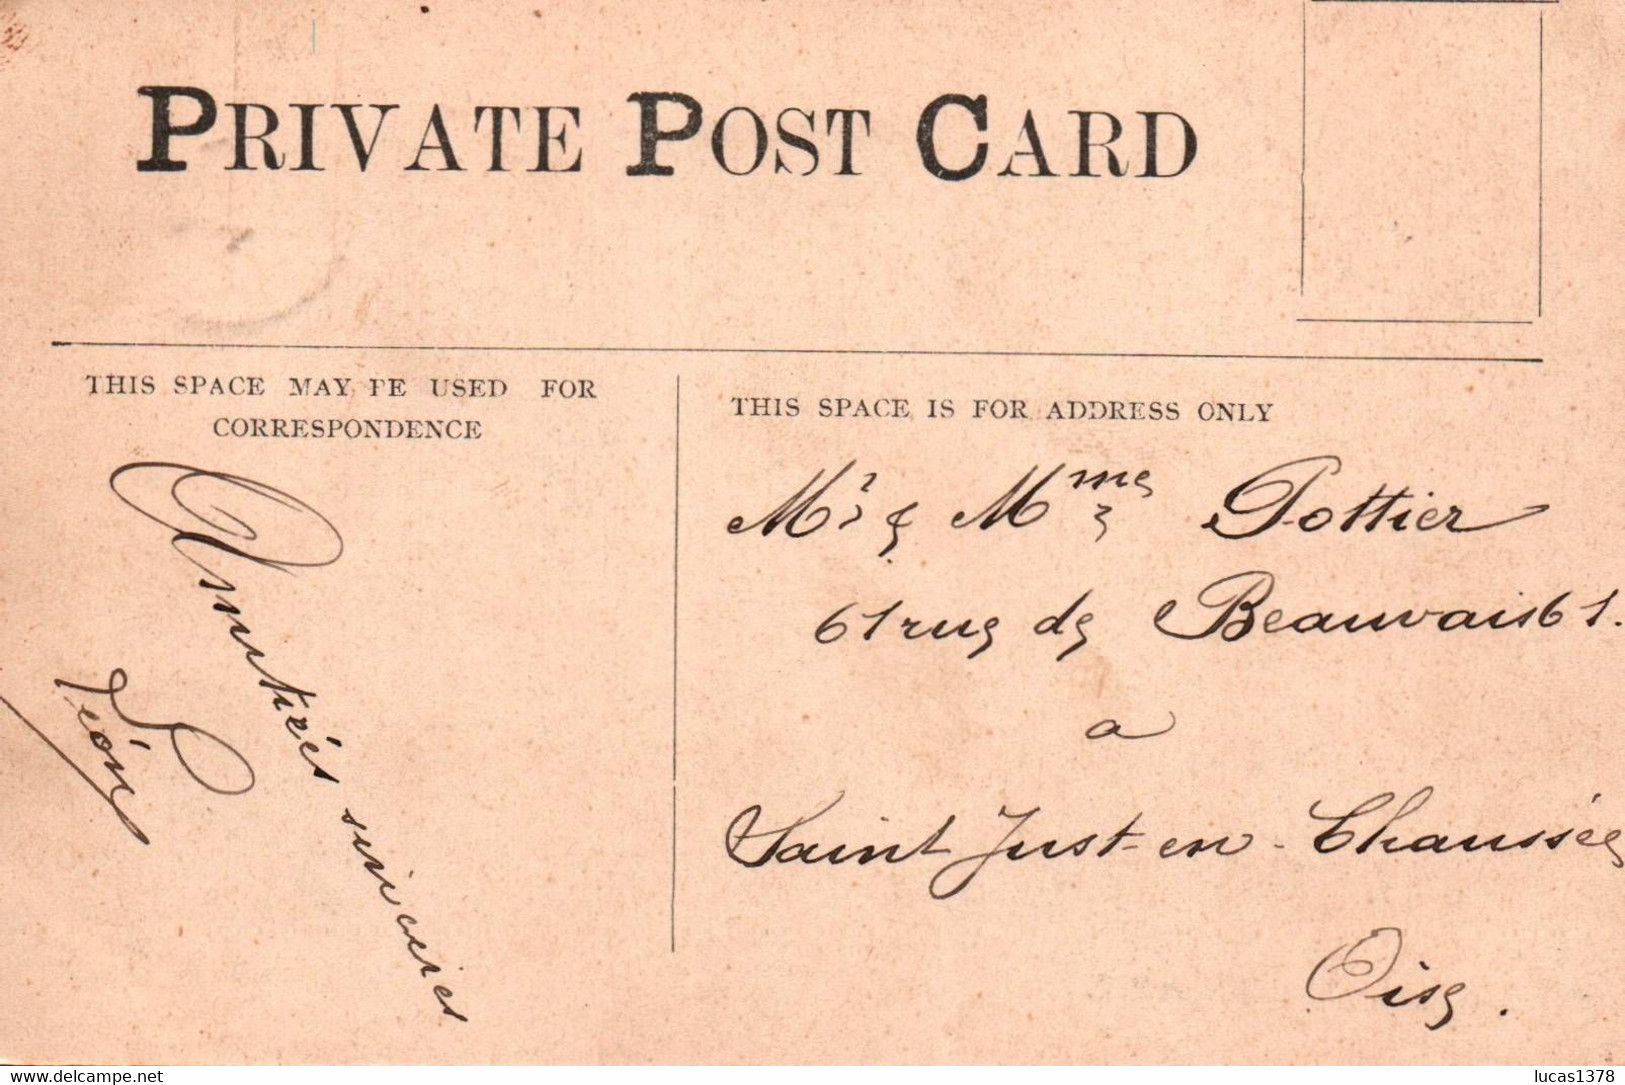 PRIVATE POST CARD
THIS SPACE MAY BE USED FOR
CORRESPONDENCE
THIS SPACE IS FOR ADDRESS ONLY
Amitiés sincères
Léon
Mr & Mme Pottier
61 rue de Beauvais 61.
a
Saint Just-en-Chaussée
Oise.
www.delcampe.net
lucas1378